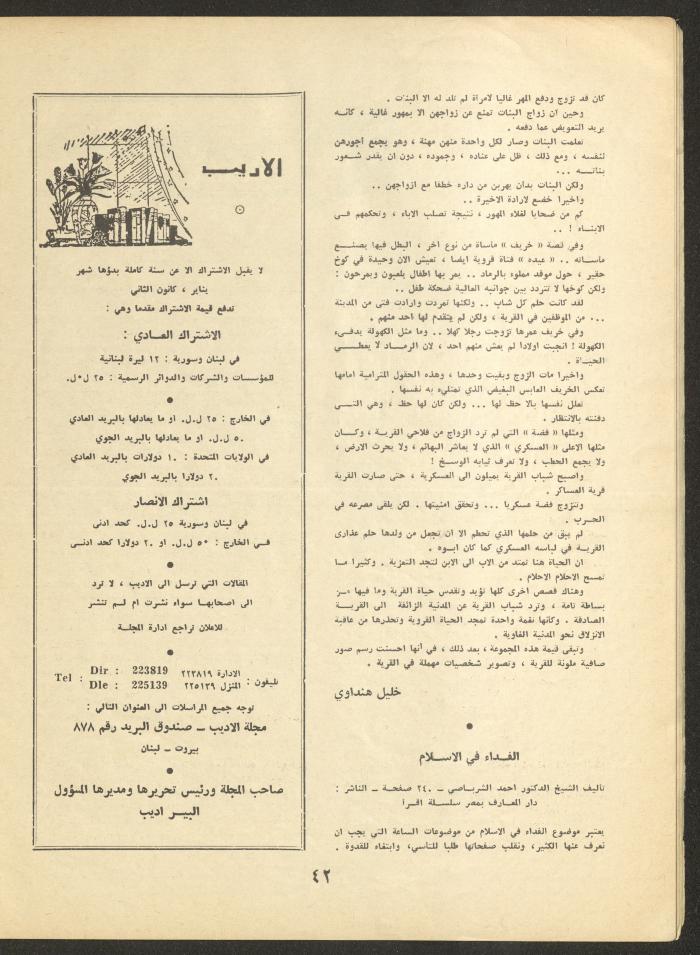 كان قد تزوج ودفع المهر غاليا لامرأة لم تلد له الا البنات .
وحين ان زواج البنات تمنع عن زواجهن الا بمهور غالية ، كأنه
يريد التعويض عما دفعه .
تعلمت البنات وصار لكل واحدة منهن مهنة ، وهو يجمع أجورهن
لنفسه ، ومع ذلك ، ظل على عناده ، وجموده ، دون ان يقدر شعور
بناته ...
ولكن البنات بدأن يهربن من داره خطفا مع ازواجهن ..
واخيرا خضع لارادة الاخيرة ..
كم من ضحايا لغلاء المهور ، نتيجة تصلب الاباء ، وتحكمهم في
الابناء ! ..
وفي قصة « خريف » مأساة من نوع اخر ، البطل فيها يصنع
مأساته .. « عبده » فتاة قروية ايضا ، تعيش الان وحيدة في كوخ
حقير ، حول موقد مملوء بالرماد .. يمر بها اطفال يلعبون ويمرحون :
ولكن كوخها لا تتردد بين جوانبه العالية ضحكة طفل ..
لقد كانت حلم كل شاب .. ولكنها تمردت وارادت فتى من المدينة
... من الموظفين في القرية ، ولكن لم يتقدم لها احد منهم .
وفي خريف عمرها تزوجت رجلا كهلا .. وما مثل الكهولة يدفىء
الكهولة ! انجبت اولادا لم يعش منهم احد ، لان الرماد لا يعطي
الحياة .
واخيرا مات الزوج وبقيت وحدها ، وهذه الحقول المترامية امامها
تعكس الخريف العابس البغيض الذي تمتلىء به نفسها .
تعلل نفسها بالا حظ لها ... ولكن كان لها حظ ، وهي التي
دفنته بالانتظار .
ومثلها « فضة » التي لم ترد الزواج من فلاحي القرية ، وكان
مثلها الاعلى « العسكري » الذي لا يعاشر البهائم ، ولا يحرث الارض ،
ولا يجمع الحطب ، ولا تعرف ثيابه الوسخ !
واصبح شباب القرية يميلون الى العسكرية ، حتى صارت القرية
قرية العساكر .
وتتزوج فضة عسكريا ... وتحقق امنيتها . لكن يلقى مصرعه في
الحرب .
لم يبق من حلمها الذي تحطم الا ان تجعل من ولدها حلم عذارى
القرية في لباسه العسكري كما كان ابوه .
ان الحياة هنا تمتد من الاب الى الابن لتجد التعزية . وكثيرا ما
تمسح الاحلام الاحلام .
وهناك قصص اخرى كلها تؤيد وتقدس حياة القرية وما فيها من
بساطة تامة ، وترد شباب القرية عن المدنية الزائفة الى القرية
الصادقة . وكأنها نغمة واحدة تمجد الحياة القروية وتحذرها من عاقبة
الانزلاق نحو المدنية الغاوية .
وتبقى قيمة هذه المجموعة ، بعد ذلك ، في أنها احسنت رسم صور
صافية ملونة للقرية ، وتصوير شخصيات مهملة في القرية .
خليل هنداوي
الفداء في الاسلام
تأليف الشيخ الدكتور احمد الشرباصي ــ ٢٤٠ صفحة ــ الناشر :
دار المعارف بمصر سلسلة اقرأ
يعتبر موضوع الفداء في الاسلام من موضوعات الساعة التي يجب ان
نعرف عنها الكثير، ونقلب صفحاتها طلبا للتأسي، وابتغاء للقدوة .
الاديب
لا يقبل الاشتراك الا عن سنة كاملة بدؤها شهر
يناير ، كانون الثاني
تدفع قيمة الاشتراك مقدما وهي :
الاشتراك العادي :
في لبنان وسورية : ١٢ ليرة لبنانية
للمؤسسات والشركات والدوائر الرسمية : ٢٥ ل.ل.
في الخارج : ٢٥ ل.ل. او ما يعادلها بالبريد العادي
٥٠ ل.ل. او ما يعادلها بالبريد الجوي
في الولايات المتحدة : ١٠ دولارات بالبريد العادي
٢٠ دولارا بالبريد الجوي
اشتراك الانصار
في لبنان وسورية ٢٥ ل.ل. كحد ادنى
في الخارج : ٥٠ ل.ل. او ٢٠ دولارا كحد ادنى
المقالات التي ترسل الى الاديب ، لا ترد
الى اصحابها سواء نشرت ام لم تنشر
للاعلان تراجع ادارة المجلة
تليفون : الادارة ٢٢٣٨١٩ Dir : 223819
المنزل ٢٢٥١٣٩ Dle : 225139 Tel :
توجه جميع المراسلات الى العنوان التالي :
مجلة الاديب ــ صندوق البريد رقم ٨٧٨
بيروت ــ لبنان
صاحب المجلة ورئيس تحريرها ومديرها المسؤول
البير اديب
٤٢